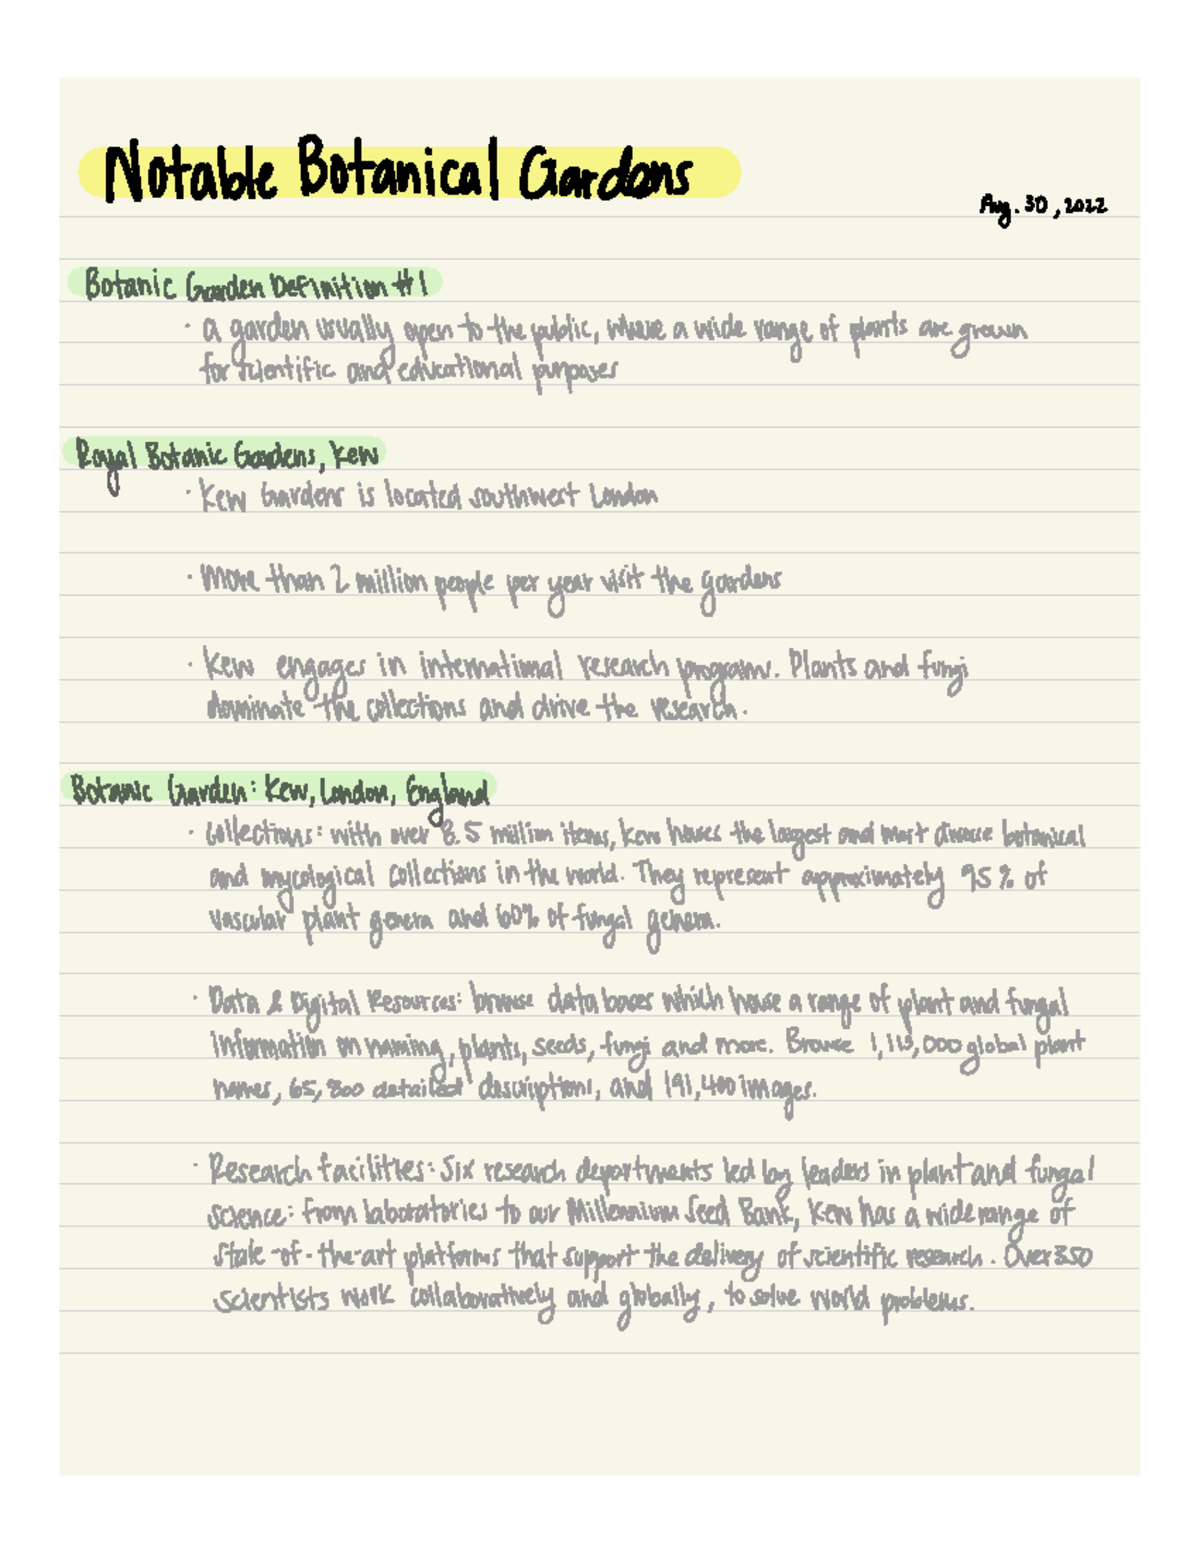 Notable Botanical Gardens
Aug. 30, 2022
Botanic Garden Definition #1
· a garden usually open to the public, where a wide range of plants are grown
for scientific and educational purposes
Royal Botanic Gardens, Kew
· Kew Gardens is located southwest London
· More than 2 million people per year visit the gardens
· Kew engages in international research programs. Plants and fungi
dominate the collections and drive the research.
Botanic Garden: Kew, London, England
· Collections: with over 8.5 million items, Kew houses the largest and most diverse botanical
and mycological collections in the world. They represent approximately 95% of
vascular plant genera and 60% of fungal genera.
· Data & Digital Resources: browse databases which house a range of plant and fungal
information on naming, plants, seeds, fungi and more. Browse global plant
names, 65,800 detailed descriptions, and 191,400 images.
· Research facilities: Six research departments led by leaders in plant and fungal
science: from laboratories to our Millennium Seed Bank, Kew has a wide range of
state-of-the-art platforms that support the delivery of scientific research. Over 350
scientists work collaboratively and globally, to solve world problems.